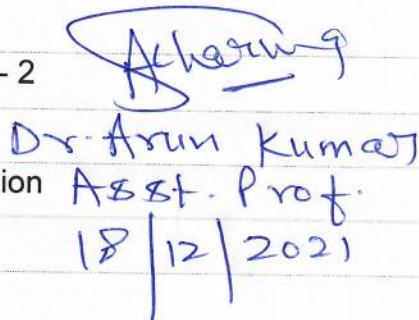 - 2
Dr. Arun Kumar
ion Asst. Prof.
18/12/2021